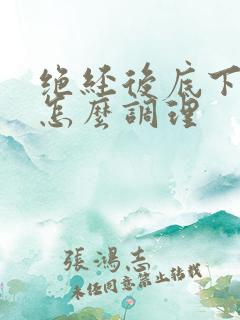 絕經後底下
怎麼調理
張鴻志
未經同意禁止轉載